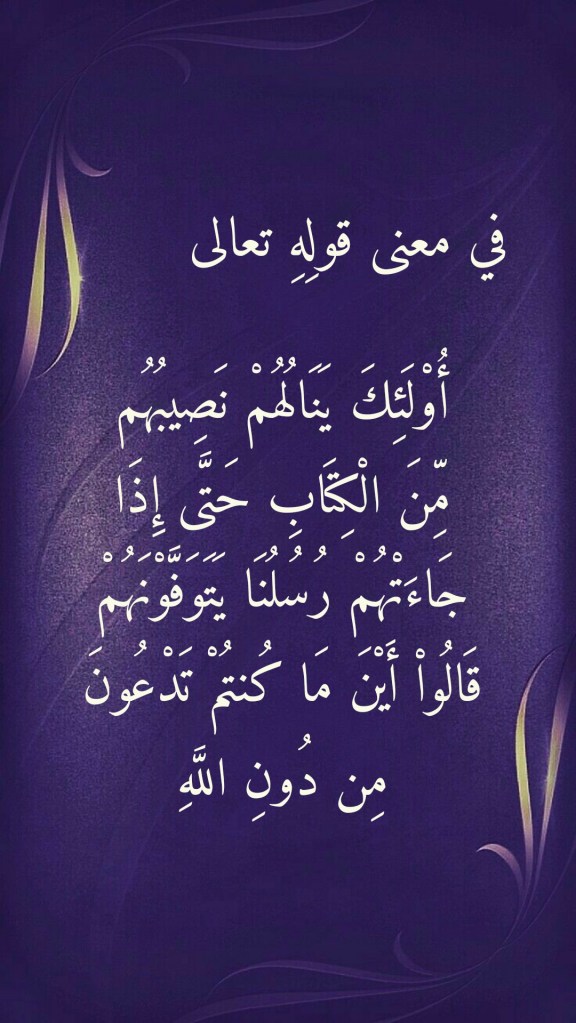 في معنى قولِهِ تعالى
أُوْلَئِكَ يَنَالُهُمْ نَصِيبُهُم
مِّنَ الْكِتَابِ حَتَّى إِذَا
جَاءَتْهُمْ رُسُلُنَا يَتَوَفَّوْنَهُمْ
قَالُواْ أَيْنَ مَا كُنتُمْ تَدْعُونَ
مِن دُونِ اللَّهِ